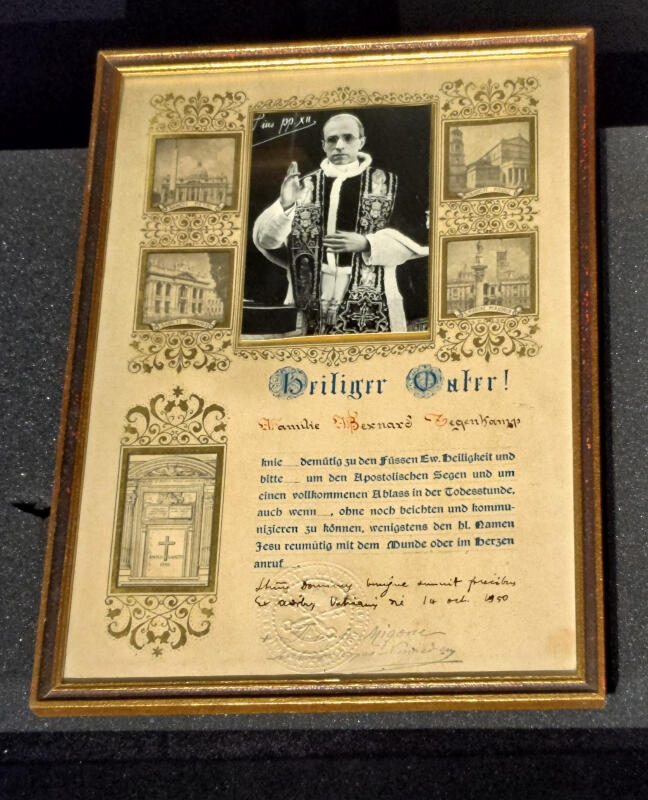 Pius pp. XII
Heiliger Vater!
Familie Bernard Tegenkamp
knie__ demütig zu den Füssen Ew. Heiligkeit und
bitte__ um den Apostolischen Segen und um
einen vollkommenen Ablass in der Todesstunde,
auch wenn__, ohne noch beichten und kommu-
nizieren zu können, wenigstens den hl. Namen
Jesu reumütig mit dem Munde oder im Herzen
anruf
benigne annuit precibus
Ex aedibus Vaticanis die 14 oct. 1950
Migone